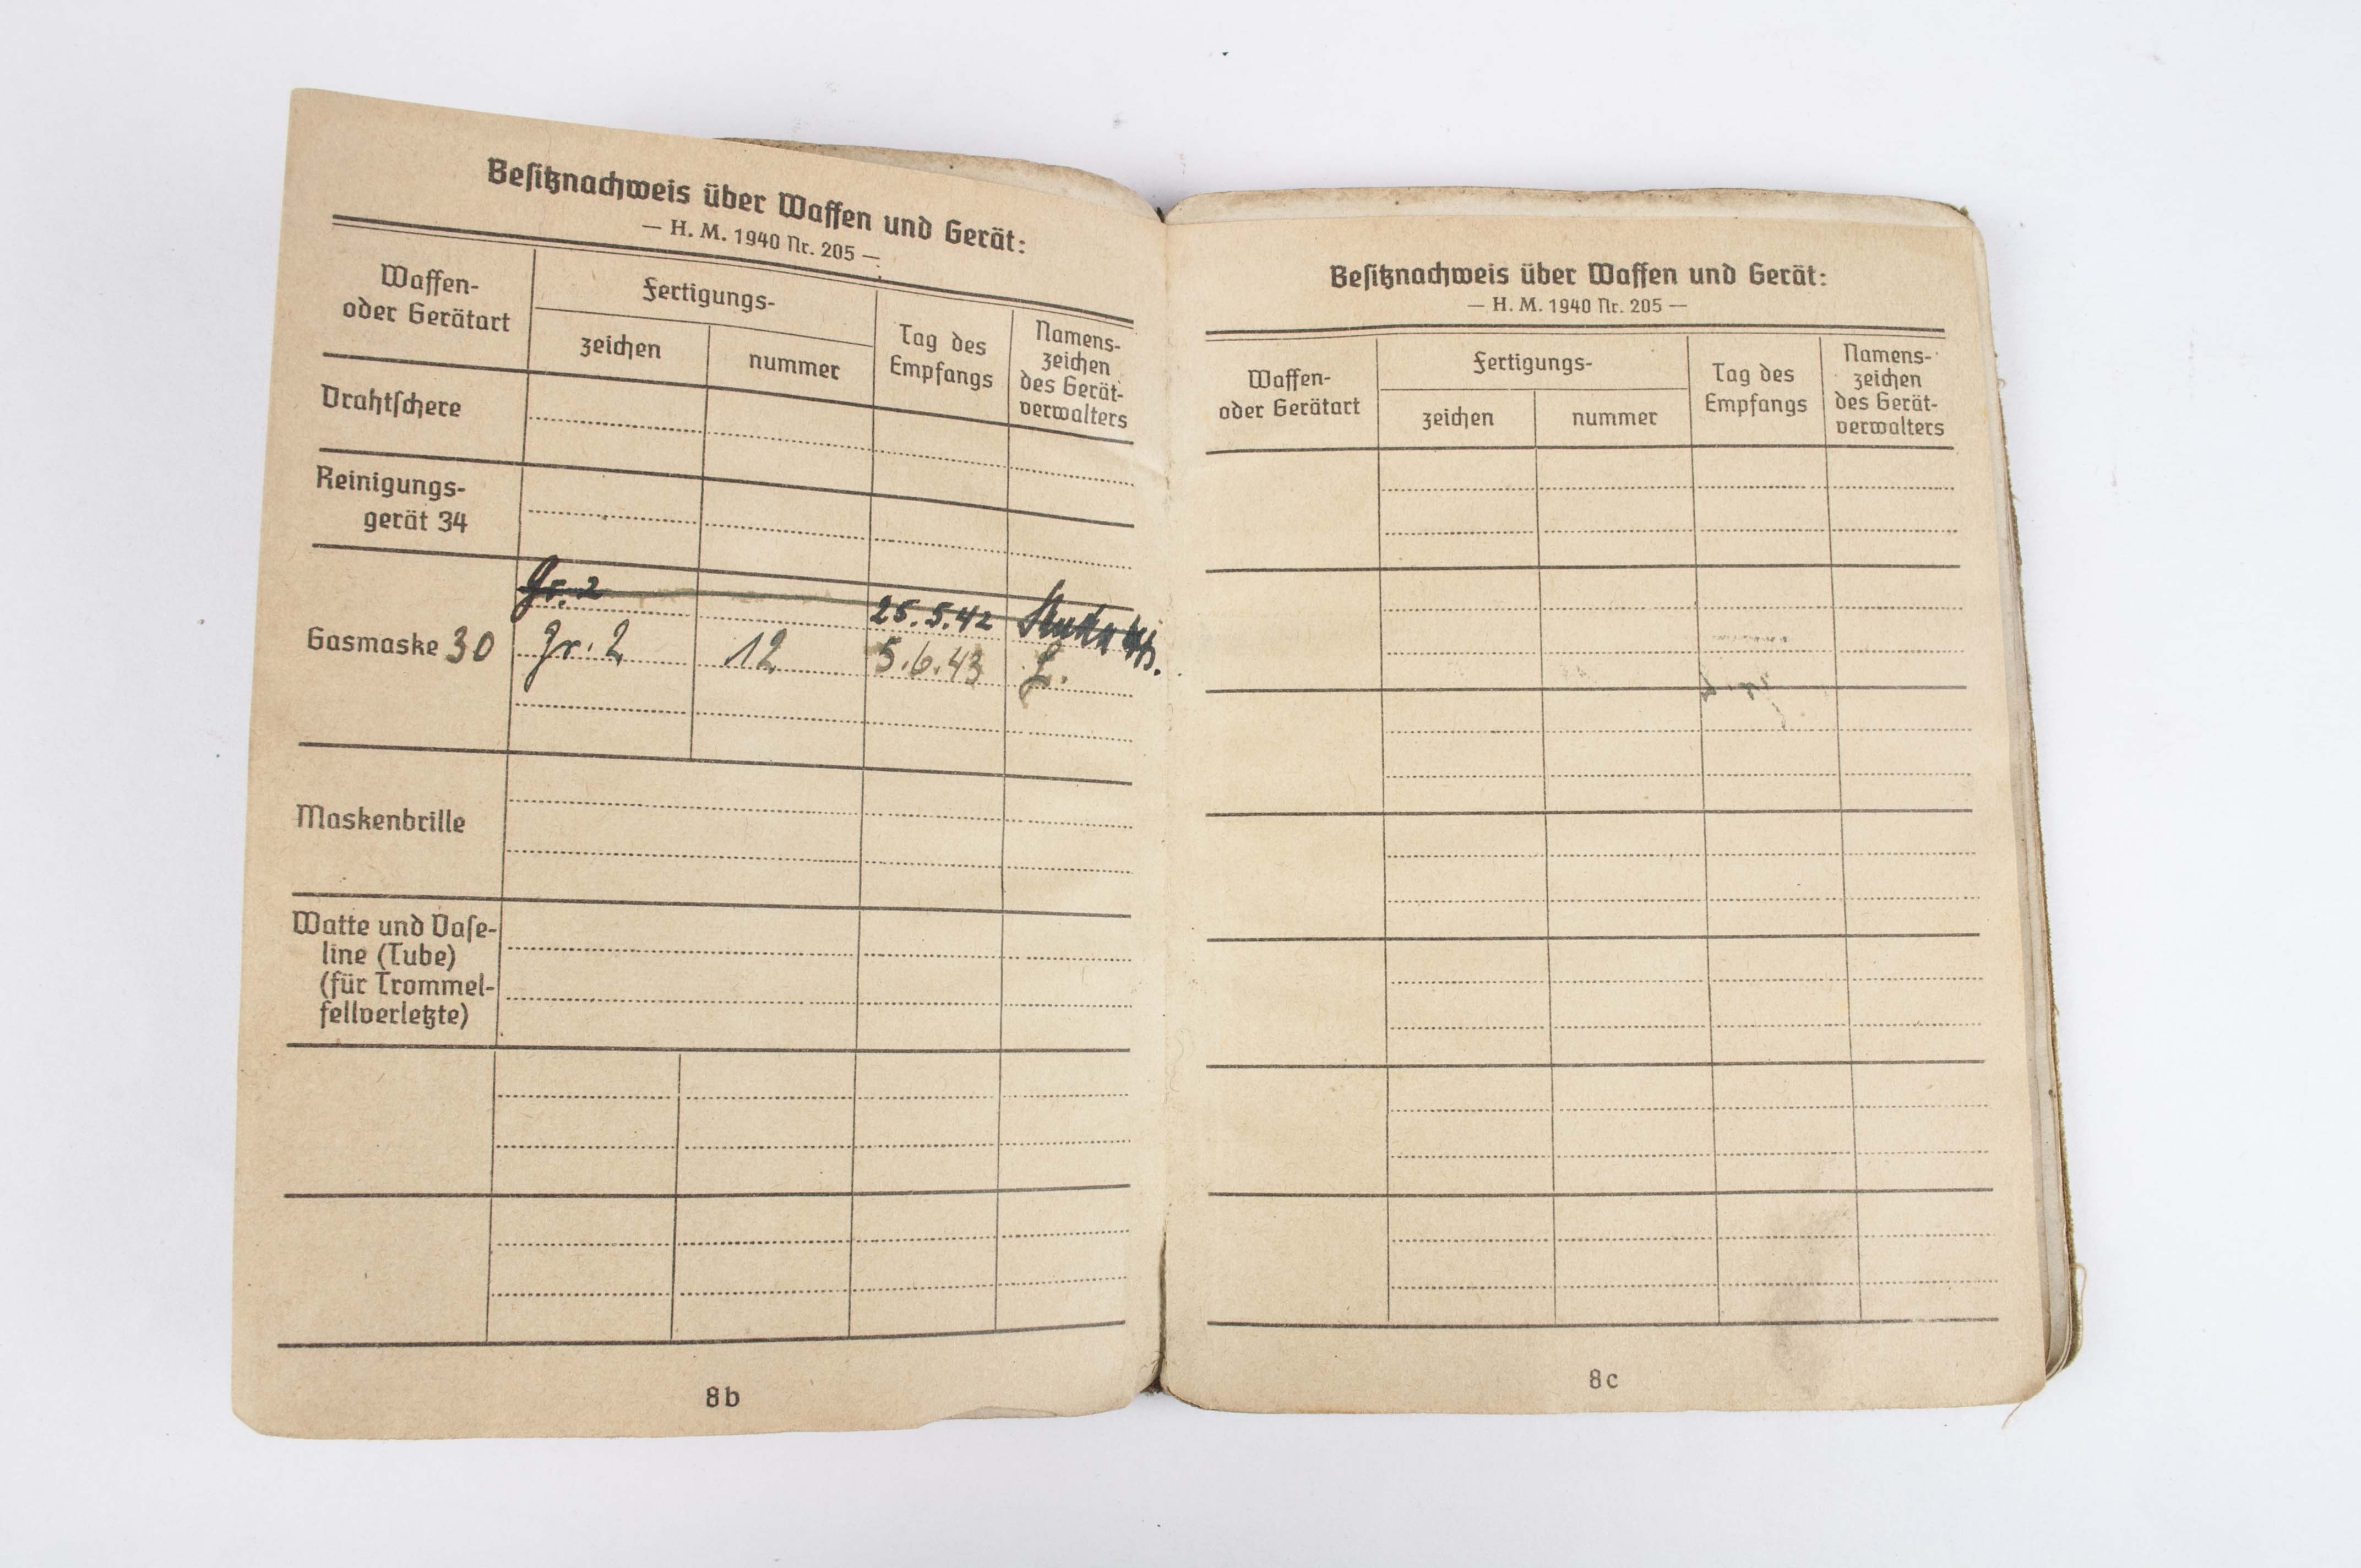 Besitznachweis über Waffen und Gerät:
— H. M. 1940 Nr. 205 —
Waffen-
oder Gerätart
Fertigungs-
zeichen
nummer
Tag des
Empfangs
Namens-
zeichen
des Gerät-
verwalters
Drahtschere
Reinigungs-
gerät 34
Gr. 2 25.5.42
Gasmaske 30 Gr. 2 12 5.6.43 L.
Maskenbrille
Watte und Vase-
line (Tube)
(für Trommel-
fellverletzte)
8b
Besitznachweis über Waffen und Gerät:
— H. M. 1940 Nr. 205 —
Waffen-
oder Gerätart
Fertigungs-
zeichen
nummer
Tag des
Empfangs
Namens-
zeichen
des Gerät-
verwalters
8c